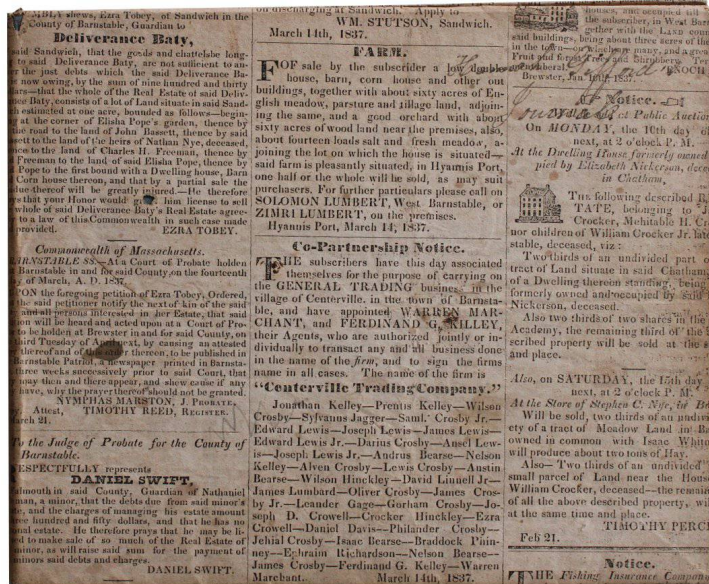 shews, Ezra Tobey, of Sandwich in the
County of Barnstable, Guardian to
Deliverance Baty,
said Sandwich, that the goods and chattelsbe long-
to said Deliverance Baty, are not sufficient to an-
the just debts which the said Deliverance Ba-
now owing, by the sum of nine hundred and thirty
ars—that the whole of the Real Estate of said Deliv-
Baty, consists of a lot of Land situate in said Sand-
estimated at one acre, bounded as follows—begin-
at the corner of Elisha Pope's garden, thence by
the road to the land of John Bassett, thence by said
sett to the land of the heirs of Nathan Nye, deceased,
nce to the land of Charles H. Freeman, thence by
Freeman to the land of said Elisha Pope, thence by
Pope to the first bound with a Dwelling house, Barn
Corn house thereon, and that by a partial sale the
due thereof will be greatly injured.—He therefore
ys that your Honor would him license to sell
whole of said Deliverance Baty's Real Estate agree-
to a law of this Commonwealth in such case made
provided. EZRA TOBEY.
Commonwealth of Massachusetts.
BARNSTABLE SS.—At a Court of Probate holden
Barnstable in and for said County, on the fourteenth
of March, A. D. 1837.
UPON the foregoing petition of Ezra Tobey, Ordered,
the said petitioner notify the next of kin of the said
and all persons interested in her Estate, that said
ion will be heard and acted upon at a Court of Pro-
to be holden at Brewster in and for said County, on
third Tuesday of April next, by causing an attested
thereof and of this order thereon, to be published in
Barnstable Patriot, a newspaper printed in Barnsta-
three weeks successively prior to said Court, that
may then and there appear, and shew cause if any
have, why the prayer thereof should not be granted.
NYMPHAS MARSTON, J Probate,
Attest, TIMOTHY REED, Register.
arch 21.
To the Judge of Probate for the County of
Barnstable.
RESPECTFULLY represents
DANIEL SWIFT,
almouth in said County, Guardian of Nathaniel
man, a minor, that the debts due from said minor's
te, and the charges of managing his estate amount
ree hundred and fifty dollars, and that he has no
onal estate. He therefore prays that he may be li-
ed to make sale of so much of the Real Estate of
minor, as will raise said sum for the payment of
minors said debts and charges.
DANIEL SWIFT.
on discharging at Sandwich. Apply to
WM. STUTSON, Sandwich.
March 14th, 1837.
FARM.
FOF sale by the subscrider a low double
house, barn, corn house and other out
buildings, together with about sixty acres of En-
glish meadow, parsture and tillage land, adjoin-
ing the same, and a good orchard with about
sixty acres of wood land near the premises, also,
about fourteen loads salt and fresh meadow, a-
joining the lot on which the house is situated—
said farm is pleasantly situated, in Hyannis Port,
one half or the whole will be sold, as may suit
purchasers. For further particulars please call on
SOLOMON LUMBERT, West Barnstable, or
ZIMRI LUMBERT, on the premises.
Hyannis Port, March 14, 1837.
Co-Partnership Notice.
THE subscribers have this day associated
themselves for the purpose of carrying on
the GENERAL TRADING business in the
village of Centerville, in the town of Barnsta-
ble, and have appointed WARREN MAR-
CHANT, and FERDINAND G. KELLEY,
their Agents, who are authorized jointly or in-
dividually to transact any and all business done
in the name of the firm, and to sign the firms
name in all cases. The name of the firm is
"Centerville Trading Company."
Jonathan Kelley—Prentis Kelley—Wilson
Crosby—Sylvanus Jagger—Saml. Crosby Jr.—
Edward Lewis—Joseph Lewis—James Lewis—
Edward Lewis Jr.—Darius Crosby—Ansel Lew-
is—Joseph Lewis Jr.—Andrus Bearse—Nelson
Kelley—Alven Crosby—Lewis Crosby—Austin
Bearse—Wilson Hinckley—David Linnell Jr—
James Lumbard—Oliver Crosby—James Cros-
by Jr.—Leander Gage—Gorham Crosby—Jo-
seph D. Crowell—Crocker Hinckley—Ezra
Crowell—Daniel Davis—Philander Crosby—
Jehial Crosby—Isaac Bearse—Braddock Phin-
ney—Ephraim Richardson—Nelson Bearse—
James Crosby—Ferdinand G. Kelley—Warren
Marchant. March 14th, 1837.
houses, and occupied till
the subscriber, in West Barn
gether with the Land
said buildings, being about three acres of
in the town—on which are many, and a great
Fruit and forest Trees and Shrubbery.
ENOCH
Brewster, Jan 1837.
Notice.
at Public Auction
On MONDAY, the 10th day of
next, at 2 o'clock P. M.
At the Dwelling House formerly owned
pied by Elizabeth Nickerson, dece
in Chatham,
THE following described R
TATE, belonging to
Crocker, Mehitable H. Cr
nor children of William Crocker Jr. late
stable, deceased, viz:
Two thirds of an undivided part o
tract of Land situate in said Chatham,
of a Dwelling therein standing, being
formerly owned and occupied by said
Nickerson, deceased.
Also two thirds of two shares in the
Academy, the remaining third of the
scribed property will be sold at the s
and place.
Also, on SATURDAY, the 15th day
next, at 2 o'clock P. M.
At the Store of Stephen C. Nye, in
Will be sold, two thirds of an undivi
ety of a tract of Moadow Land in Ba
owned in common with Isaac White
will produce about two tons of Hay.
Also— Two thirds of an undivided
small parcel of Land near the House
William Crocker, deceased—the remain
of all the above described property, wil
at the same time and place.
TIMOTHY PERC
Feb 21.
Notice.
THE Fishing Insurance Compan